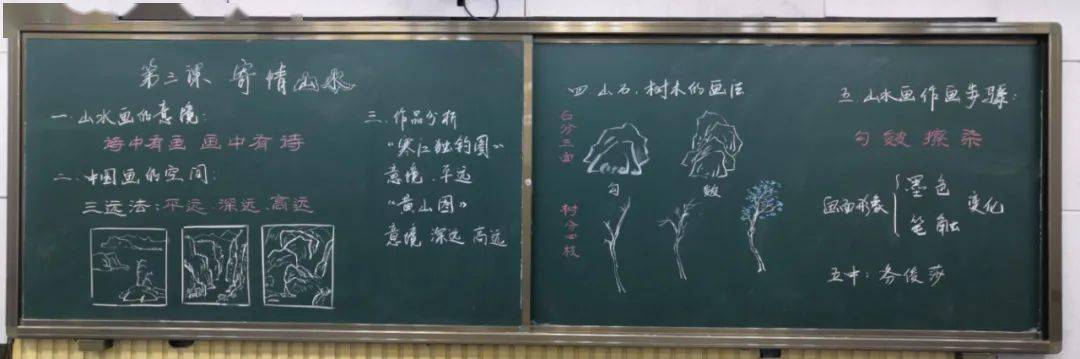 第三课 寄情山水
一、山水画的意境:
诗中有画 画中有诗
二、中国画的空间:
三远法:平远、深远、高远
三、作品分析
"寒江独钓图"
意境、平远
"黄山图"
意境 深远 高远
四 山石、树木的画法
石分三面
勾 皴
树分四枝
五 山水画作画步骤:
勾 皴 擦 染
画面形象
墨色
笔触
变化
五中:务俊莎